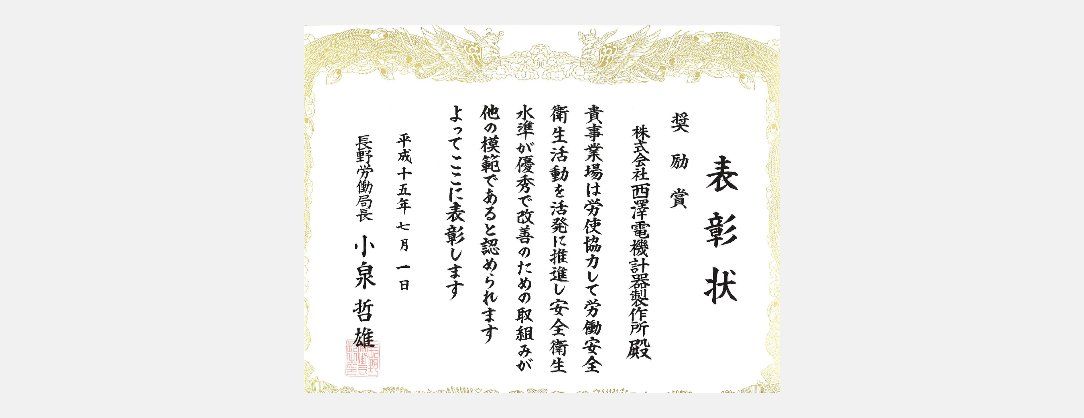 表彰状
奨励賞
株式会社西澤電機計器製作所殿
貴事業場は労使協力して労働安全
衛生活動を活発に推進し安全衛生
水準が優秀で改善のための取組みが
他の模範であると認められます
よってここに表彰します
平成十五年七月一日
長野労働局長 小泉哲雄